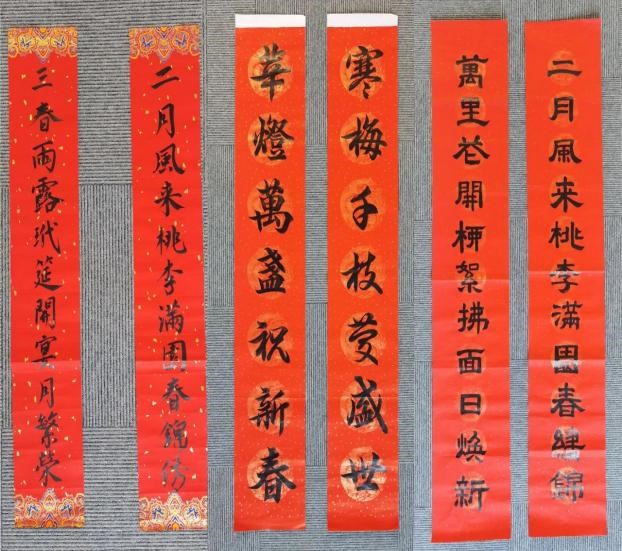 二月風来桃李满園春錦
三春雨露玳筵開宴月繁榮
寒梅千枝慶盛世
華燈萬盞祝新春
二月風来桃李滿園春錦
萬里花開柳絮拂面日焕新